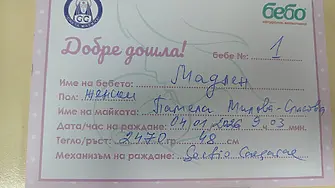 бебо
Добре дошла!
бебе № 1
Име на бебето: Мадлен
Пол: женски
Име на майката: Памела Милова-Спасова
Дата/час на раждане: 04 01 2026 9 ч 03 мин
Тегло/ръст: 2470 гр. 48 см
Механизъм на раждане: Sectio Caesarea